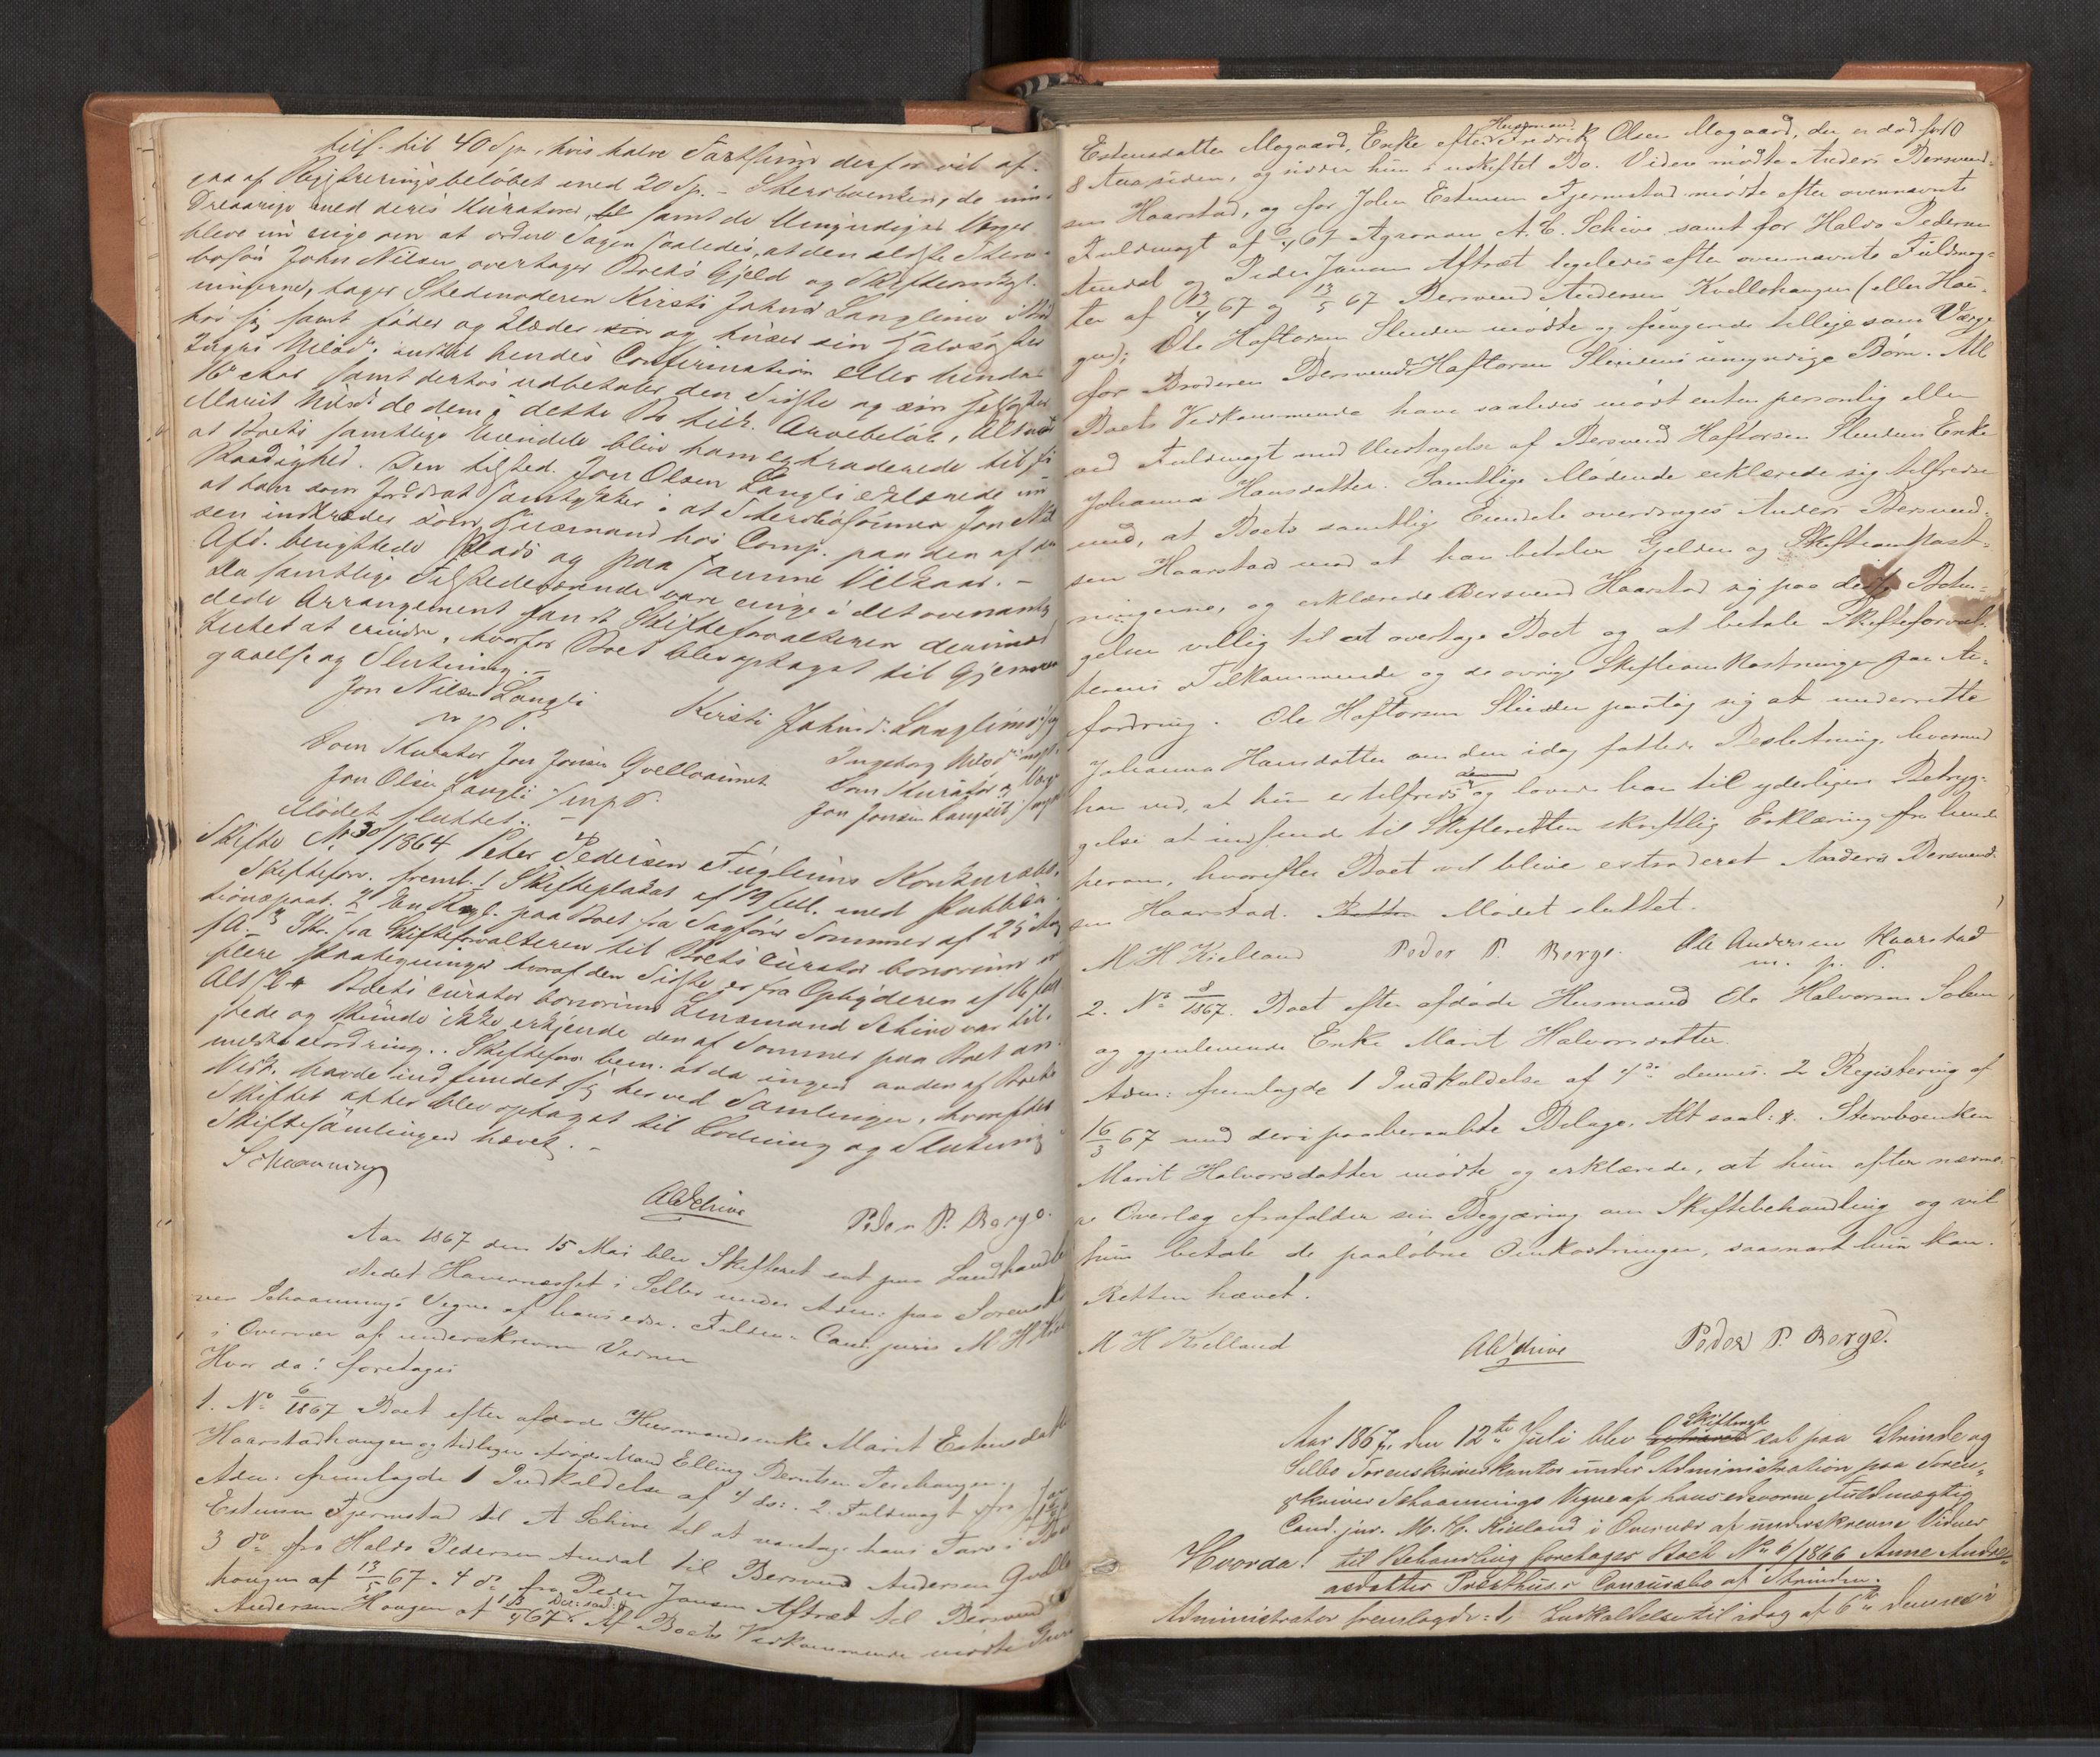 tils. til 40 Sp., hvis halve Part derfor vil af-
gaa af Registreringsbeløbet med 20 Sp. – Sterboenken, de min-
dreaarige med deris Kurator, samt de Umyndiges Værger
bleve nu enige om at ordne Sagen saaledes, at den ældste Sterv-
bosøn John Nilsen overtager Boets Gjeld og Skifteomkost-
ningerne, tager Stedmoderen Kirsti Johnsd. Langlimo
hos sig samt føder og klæder og huser sin Halvsøster
Ingri Nilsd. indtil hendes Confirmation eller hendes
16de Aar samt derhos udbetaler den Sidste og sin Søster
Marit Nilsd. de dem i dette Bo tilk. Arvebeløb, Alt mod
at Boets samtlige Eiendele blive ham extraderede til fri
Raadighed. Den tilsted. Jon Olsen Langli erklærede nu
at han som Jorddrot samtykker i at Sterbosønnen Jon Nil-
sen indtræder som Huusmand hos Comp. paa den af den
Afd. benyttede Plads og paa samme Vilkaar. –
Da samtlige Tilstedeværende vare enige i det ovenanty-
dede Arrangement fandt Skifteforvalteren derimod
Intet at erindre, hvorfor Boet blev optaget til Gjennem-
gaaelse og Slutning. –
Jon Nilsen Langli
m. p. P.
Kirsti Johnsd. Langlimo
Som Kurator Jon Jonsen Qvellosunet
Ingeborg Nilsd. m. p. P.
Jon Olsen Langli / m. p. P.
Som Kurator og Værge
Jon Jonsen Langlie
Mødet sluttet. –
Skifte No. 30/1864 Peder Pedersen Fuglems Konkursbo.
Skifteforv. freml. 1 Skifteplakat af 19 feb. med Publika-
tionspaat. 2 En Regl. paa Boet fra Sagfører Sommer af 25 Maj
f. A. 3 Skr. fra Skifteforvalteren til Boets curator bonorum m.
flere Paategninger hvoraf den Sidste er fra Ophyderen af 16
Alt Boets curator bonorum Lensmand Schive var til-
stede og kunde ikke erkjende den af Sommer paa Boet an-
meldte Fordring. Skifteforv. bem. at da ingen anden af Boets
Vedk. havde indfundet sig her ved Samlingen, hvorefter
Skiftet atter blev optaget til Lodning og Slutning
Skiftesamlingen hævet. –
Schaanning
A Schive
Peder P. Berge.
Aar 1867 den 15 Mai blev Skifteret sat paa Landhandler
stedet Havernæsset i Selbu under Adm: paa Sorenskri-
ver Schaannings Vegne af hans edsv. Fuldm. Cand. juris M H Kiel
i Overvær af underskrevne Vidner
Hvor da! foretages
1. No 6/1867 Boet efter afdøde Husmandsenke Marit Estensdatter
Haarstadhaugen og tidligere afdøde Mand Elling Berntsen
Adm: fremlagde 1 Indkaldelse af 4 ds:. 2. Fuldmagt fra Jon
Estensen Fjermstad til A Schive til at varetage hans Tarv i Boet
3 do fra Haldo Pedersen Amdal til Bersvend Andersen Qvello
haugen af 13/5 67. 4 do fra Peder Jansen Aftræt til Bersvend
Andersen Haugen af 13/4 67. Af Boets Vedkommende mødte Guru
Estensdatter Mogaard, Enke efter Husmand Fredrik Olsen Mogaard, der er død for 10
8 Aar siden, og sidder hun i uskiftet Bo. Videre mødte Anders Bersvend-
sen Haarstad, og for John Estensen Fjermstad mødte efter ovennævnte
Fuldmagt af 6/4 67 Agronom A. C. Schive samt for Haldo Pedersen
Amdal og Peder Jansen Aftræt ligeledes efter ovennævnte Fuldmag-
ter af 13/4 67 og 13/5 67 Bersvend Andersen Kvellohaugen (eller Hau-
gen); Ole Haftorsen Slinden mødte og fungerede tillige som Værge
for Broderen Bersvend Haftorsen Slindens umyndige Børn. All
Boets Vedkommende have saaledes mødt enten personlig eller
ved Fuldmagt med Undtagelse af Bersvend Haftorsen Slindens Enke
Johanna Hansdatter. Samtlige Mødende erklærede sig tilfredse
med, at Boets samtlige Eiendele overdrages Anders Bersvend-
sen Haarstad mod at han betaler Gjelden og Skifteomkost-
ningerne, og erklærede Bersvend Haarstad sig paa disse Betin-
gelser villig til at overtage Boet og at betale Skifteforval-
terens Tilkommende og de øvrige Skifteomkostninger paa An-
fordring. Ole Haftorsen Slinden paatog sig at underrette
Johanna Hansdatter om den idag fattede Beslutning, hvormed
han ved, at hun er tilfreds og lovede han til yderligere Betryg-
gelse at indsende til Skifteretten skriftlig Erklæring fra hende
herom, hvorefter Boet vil blive extraderet Anders Bersvend-
sen Haarstad. Retten Mødet sluttet.
M H Kielland Peder P. Berge. Ole Andersen Haarstad
m. p. P.
2. No 8/1867. Boet efter afdøde Husmand Ole Halvorsen Solem
og gjenlevende Enke Marit Halvorsdatter.
Adm: fremlagde 1 Indkaldelse af 4de dennes. 2 Registering af
16/3 67 med deri paaberaabte Belage. Alt saal: Stervboenken
Marit Halvorsdatter mødte og erklærede, at hun efter nærme-
re Overlæg frafalder sin Begjæring om Skiftebehandling og vil
hun betale de paaløbne Omkostninger, saasnart hun kan.
Retten hævet.
M H Kielland
A Schive
Peder P. Berge.
Aar 1867, den 12te Juli blev Skifteret sat paa Strinde og
Selbo Sorenskriverkontor under Administration paa Soren-
skriver Schaannings Vegne af hans edsvorne Fuldmægtig
Cand. jur. M. H. Kielland i Overvær af underskrevne Vidner
Hvorda! til Behandling foretages Boet No 6/1866 Anne Andre-
asdatter Presthus's Concursbo af Strinden.
Administrator fremlagde: 1, Indkaldelse til idag af 6te dennes